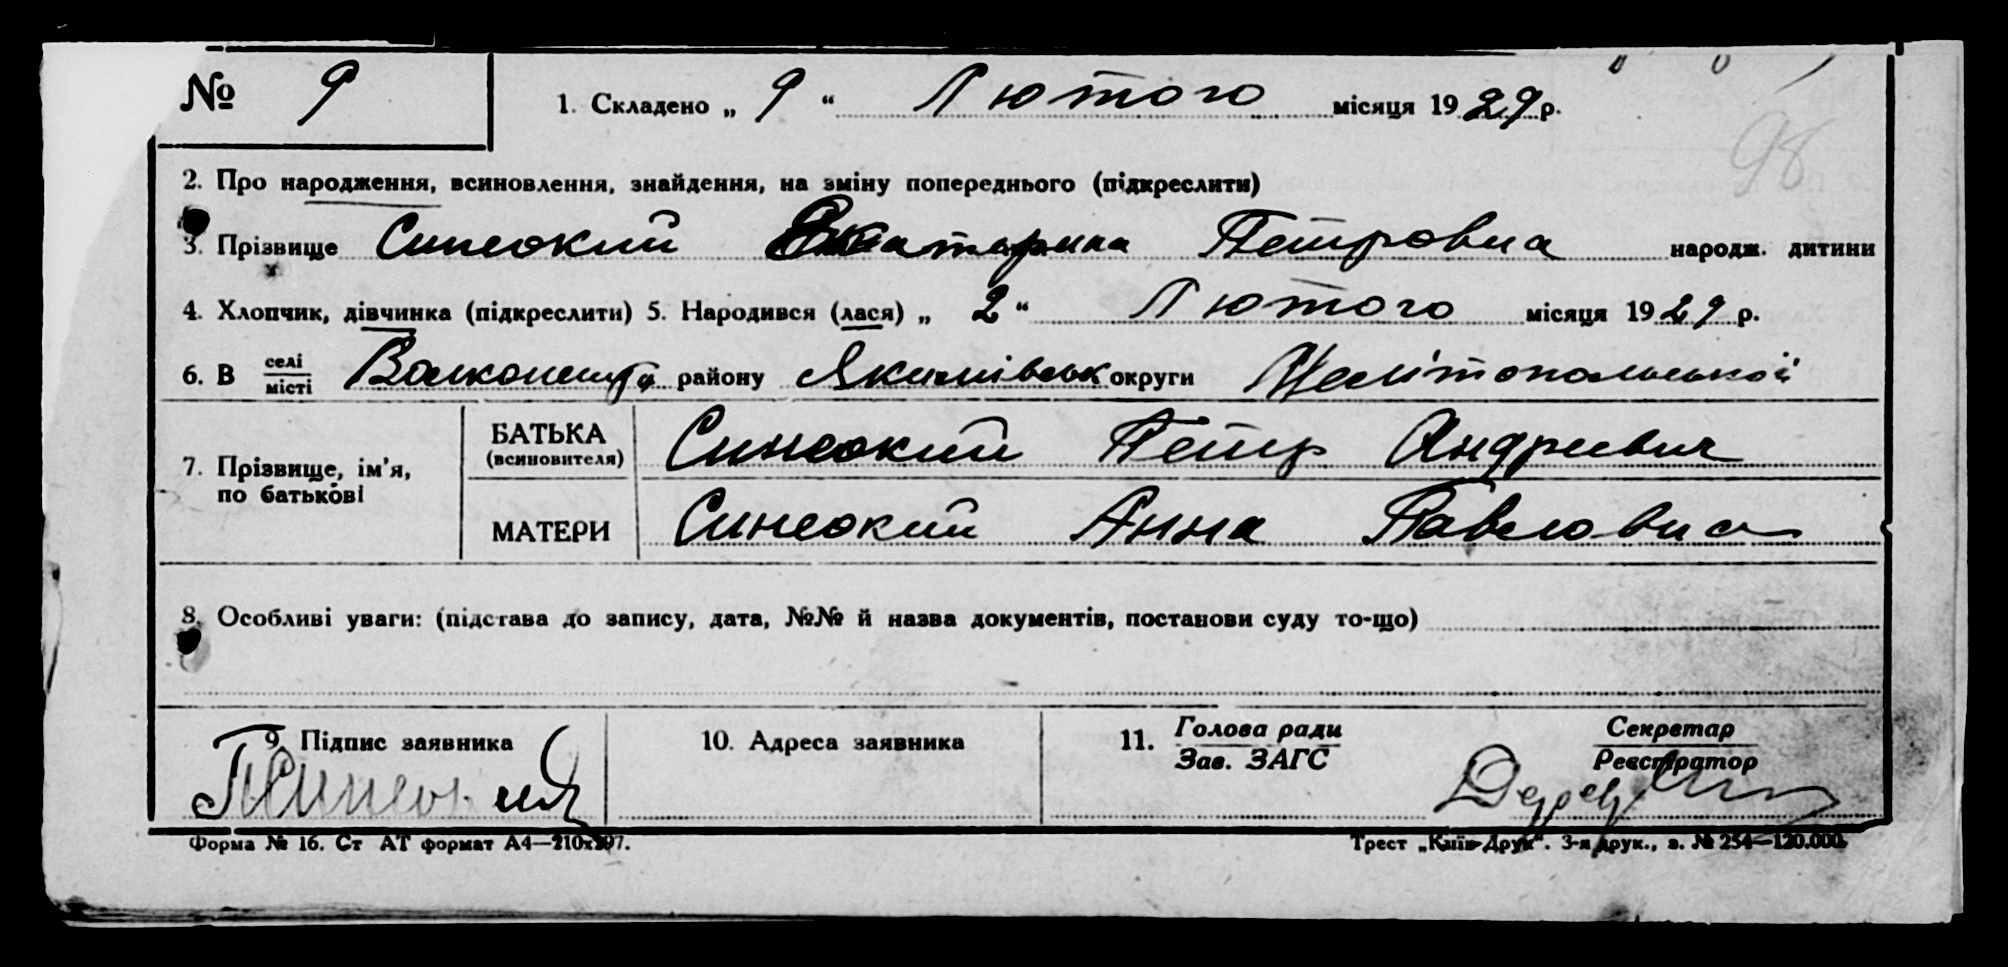 № 9 1. Складено „ 9 “ Лютого місяця 1929 р.
98
2. Про народження, всиновлення, знайдення, на зміну попереднього (підкреслити)
3. Прізвище Синеокий Екатарина Петровна народж. дитини
4. Хлопчик, дівчинка (підкреслити) 5. Народився (лася) „ 2 “ Лютого місяця 1929 р.
6. В селі/місті району Якимівськ округи Мелітопольської
7. Прізвище, ім'я, по батькові
БАТЬКА (всиновителя) Синеокий Петр Андреевич
МАТЕРИ Синеокий Анна Павловна
8. Особливі уваги: (підстава до запису, дата, №№ й назва документів, постанови суду то-що)
9. Підпис заявника 10. Адреса заявника 11. Голова ради Секретар
Зав. ЗАГС Реєстратор
Форма № 16. Ст АТ формат А4—210х297. Трест „Київ-Друк“. 3-я друк., з. № 254—120.000.